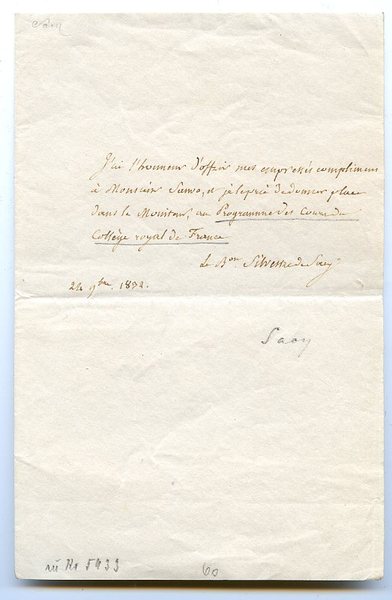 J'ai l'honneur d'offrir mes empressés complimens
à Monsieur Sauvo, et je le prie de donner place
dans le Moniteur, au Programme des Cours du
Collège royal de France.
Le Bon Silvestre de Sacy
24 9bre 1832.
Sacy
5433
60